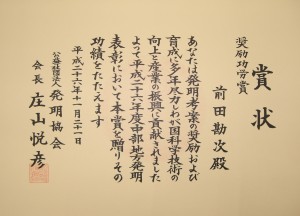 賞状
奨励功労賞
前田勘次殿
あなたは発明考案の奨励および
育成に多年尽力しわが国科学技術の
向上と産業の振興に貢献されました
よって平成二十六年度中部地方発明
表彰において本賞を贈りその
功績をたたえます
平成二十六年十一月二十一日
公益社団法人発明協会
会長 庄山悦彦